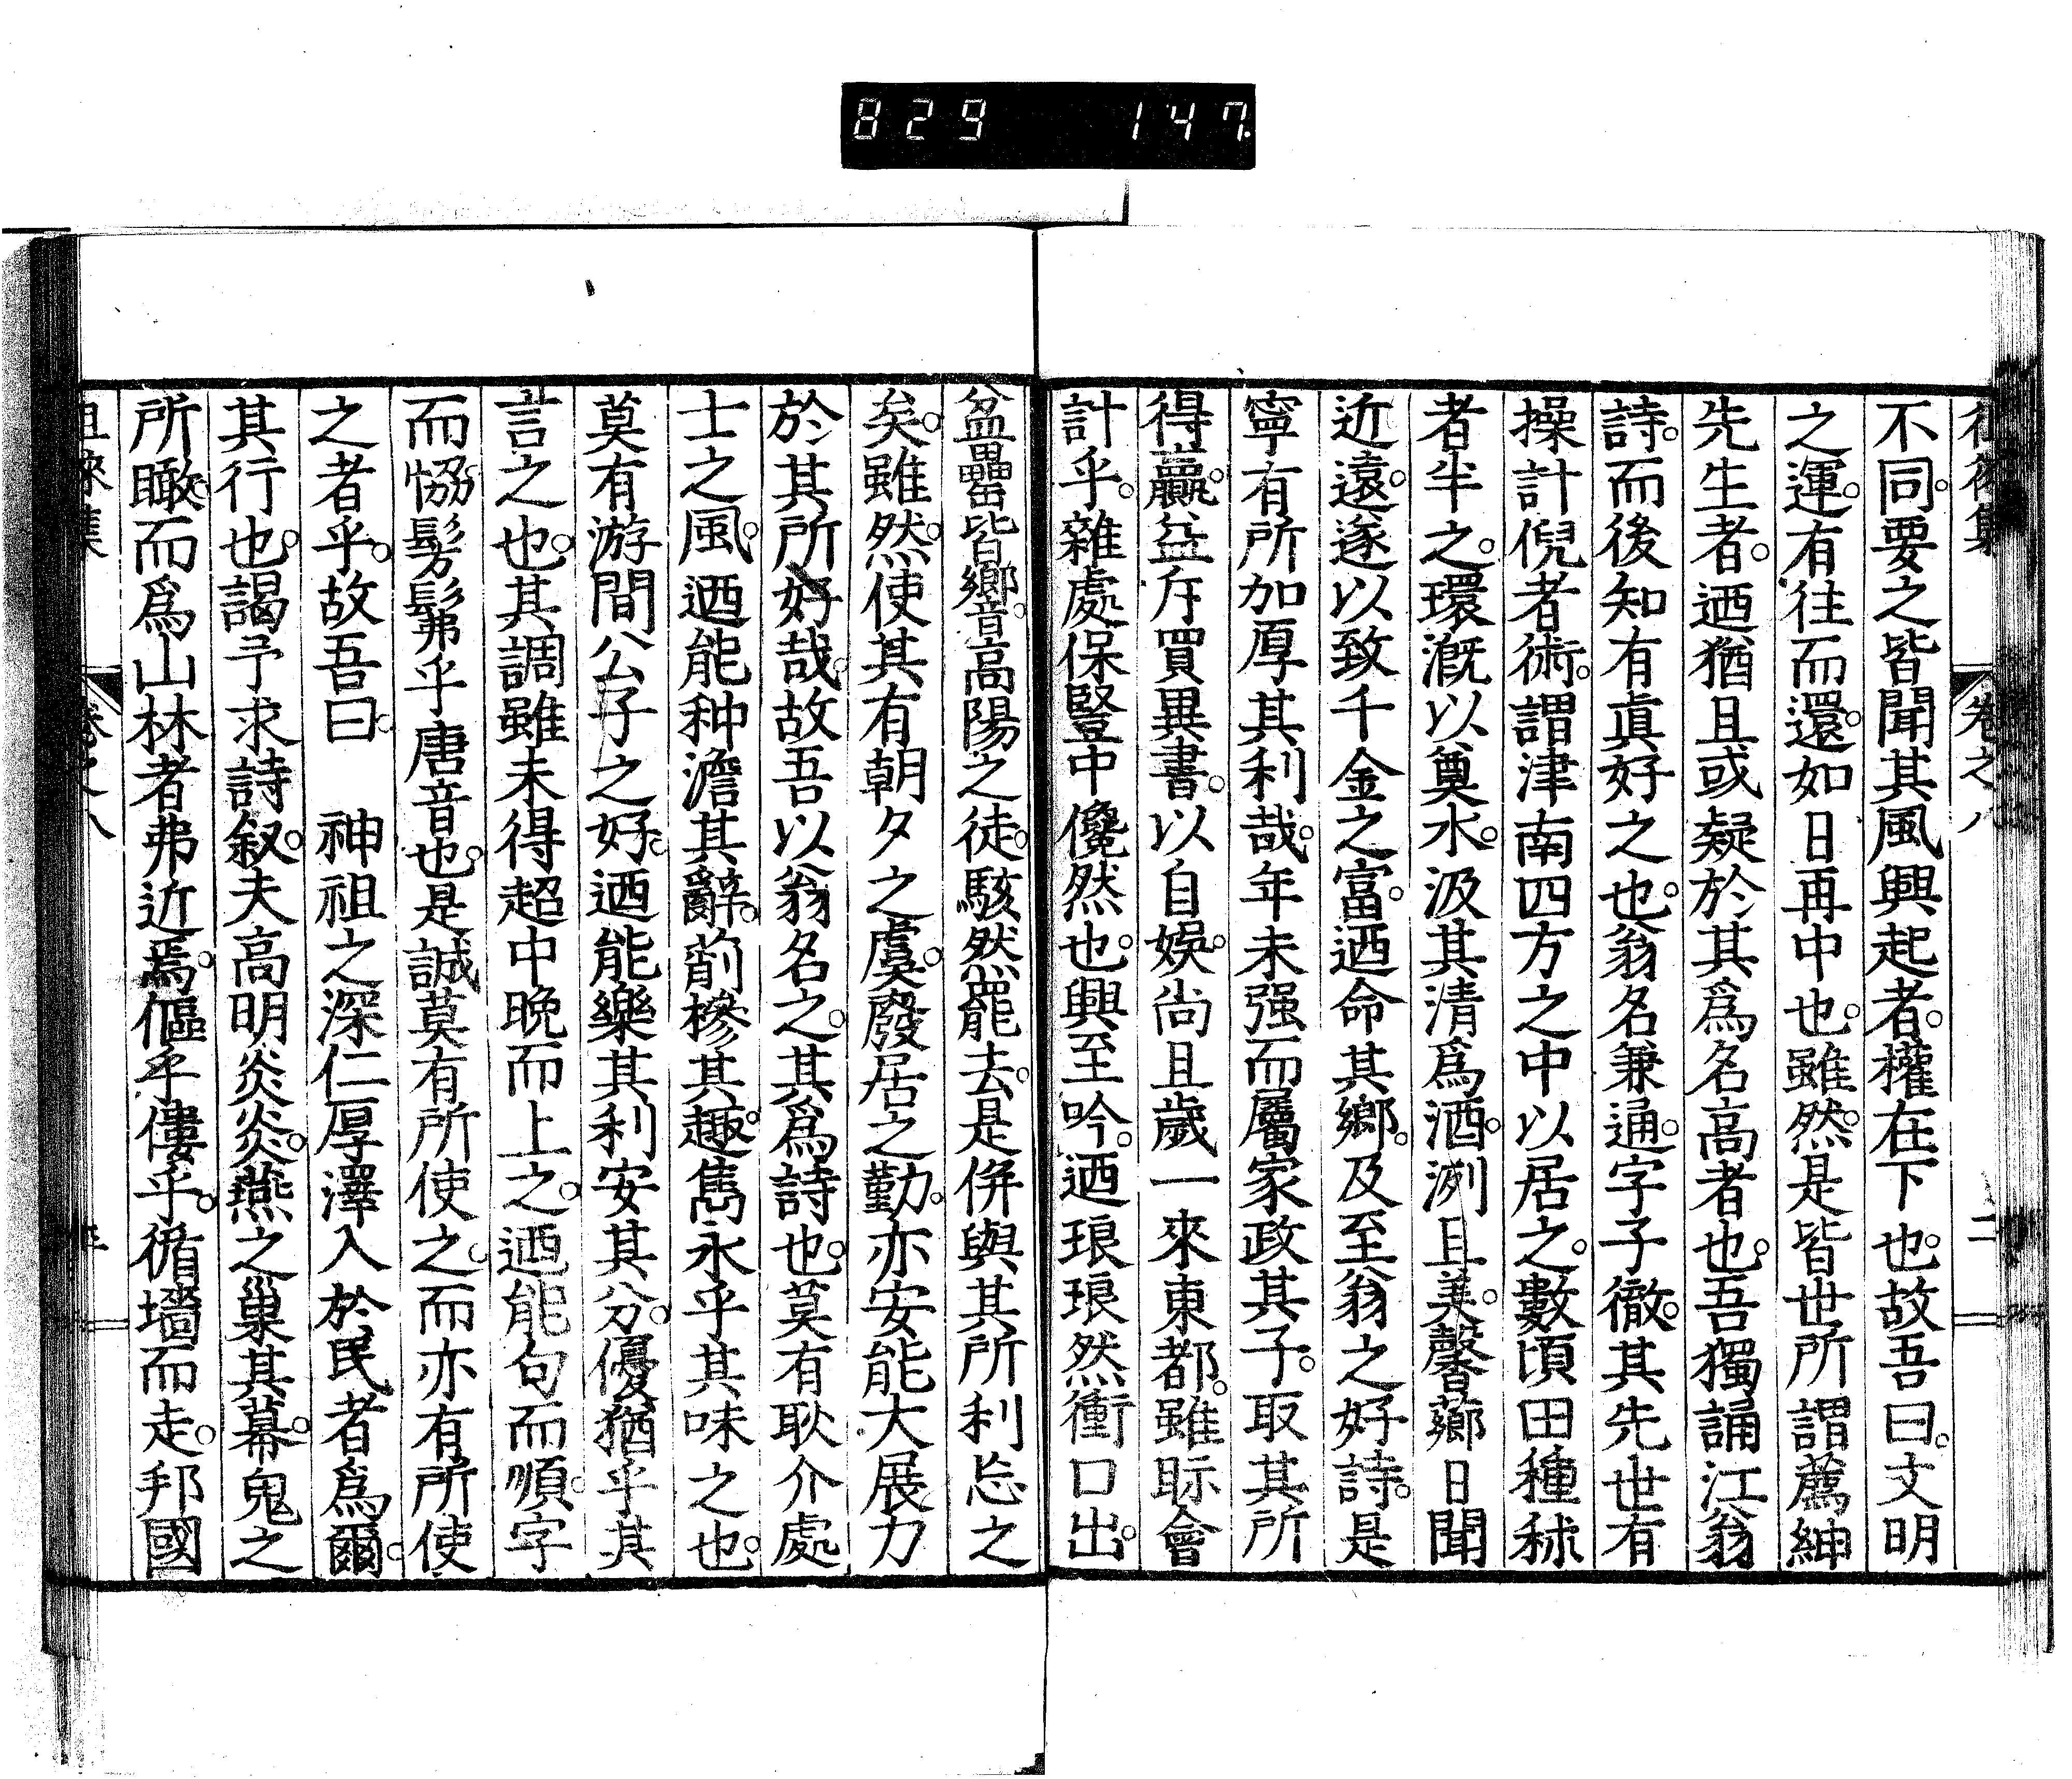 829 147
不同。要之皆聞其風興起者。權在下也。故吾曰。文明
之運。有往而還。如日再中也。雖然。是皆世所謂薦紳
先生者。迺猶且或疑於其爲名高者也。吾獨誦江翁
詩。而後知有眞好之也。翁名兼通。字子徹。其先世有
操計倪者術。謂津南四方之中以居之。數頃田種秫
者半之。環漑以奠水。汲其清爲酒。洌且美。馨薌日聞
近遠。遂以致千金之富。迺命其鄉。及至翁之好詩。是
寧有所加厚其利哉。年未强而屬家政其子。取其所
得贏。益斥買異書。以自娛。尚且歲一來東都。雖眎會
計乎。雜處保豎中儳然也。興至吟。迺琅琅然衝口出。
盆罍皆鄉音。高陽之徒。駭然罷去。是併與其所利忘之
矣。雖然。使其有朝夕之虞。廢居之勤。亦安能大展力
於其所好哉。故吾以翁名之。其爲詩也。莫有耿介處
士之風。迺能种澹其辭。萷槮其趣。雋永乎其味之也。
莫有游間公子之好。迺能樂其利安其分。優猶乎其
言之也。其調雖未得超中晚而上之。迺能句而順。字
而恊。髣髴乎唐音也。是誠莫有所使之。而亦有所使
之者乎。故吾曰。 神祖之深仁厚澤入於民者爲爾。
其行也。謁予求詩叙。夫高明炎炎。燕之巢其幕。鬼之
所瞰。而爲山林者弗近焉。傴乎僂乎。循墻而走。邦國
卷之八